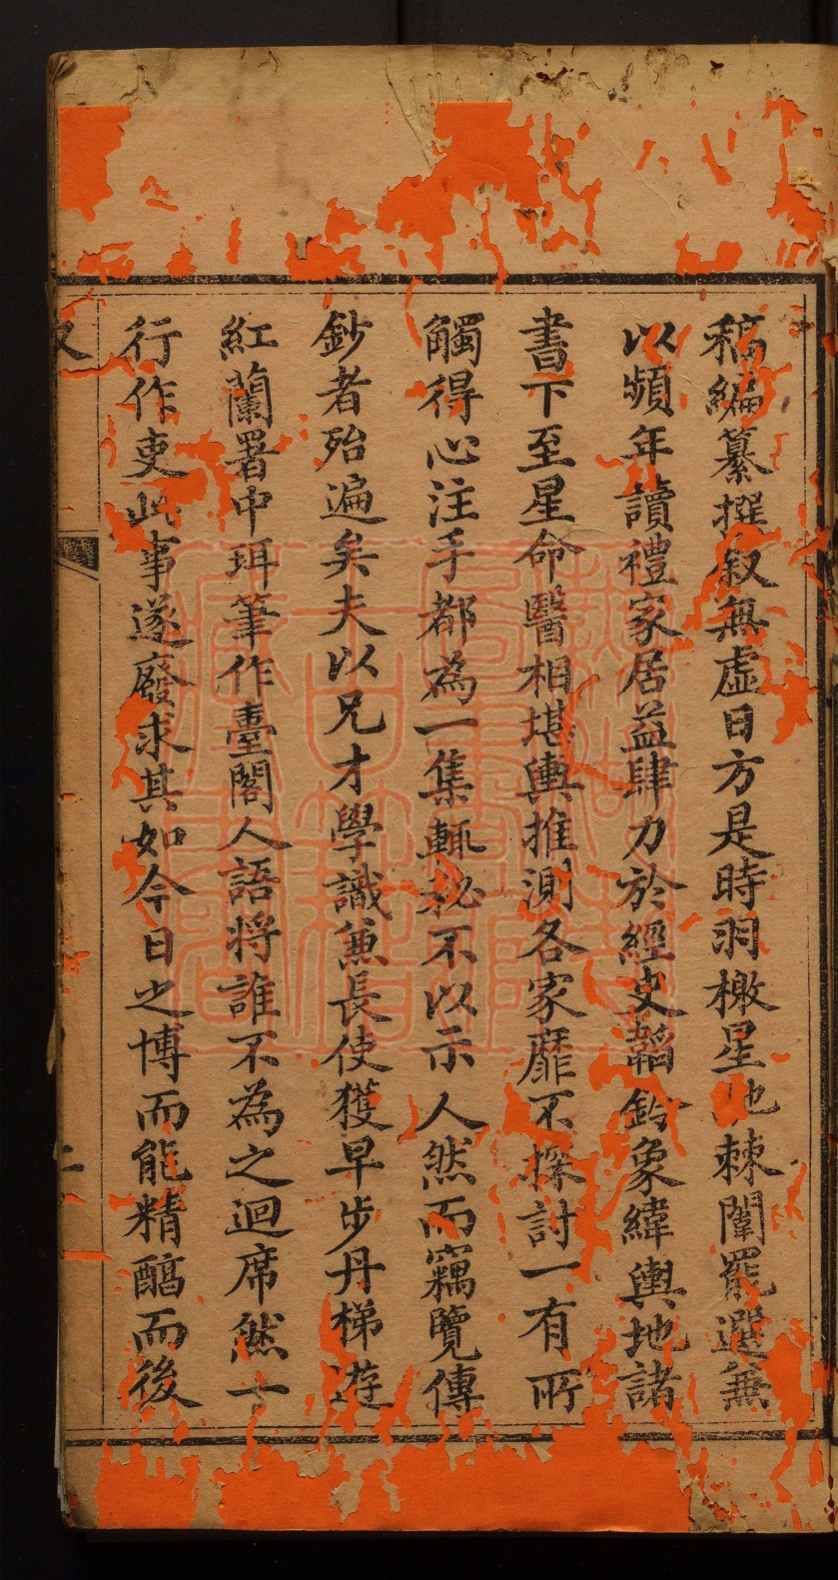 稿編纂撰叙無虛日方是時羽檄星馳棘闈罷選兼
以頻年讀禮家居益肆力於經史韜鈐象緯輿地諸
書下至星命醫相堪輿推測各家靡不探討一有所
觸得心注手都為一集輒秘不以示人然而竊覽傳
鈔者殆遍矣夫以兄才學識兼長使獲早步丹梯遊
紅蘭署中珥筆作臺閣人語將誰不為之迴席然一
行作吏此事遂廢求其如今日之博而能精醇而後
叙
二